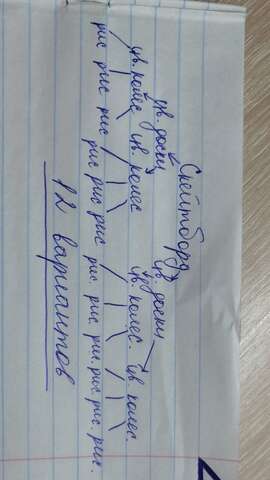 Скейтборд
цв. доски цв. доски
цв. колес цв. колес цв. колес. цв. колес.
рис рис рис рис рис рис рис. рис. рис. рис. рис. рис.
12 вариантов